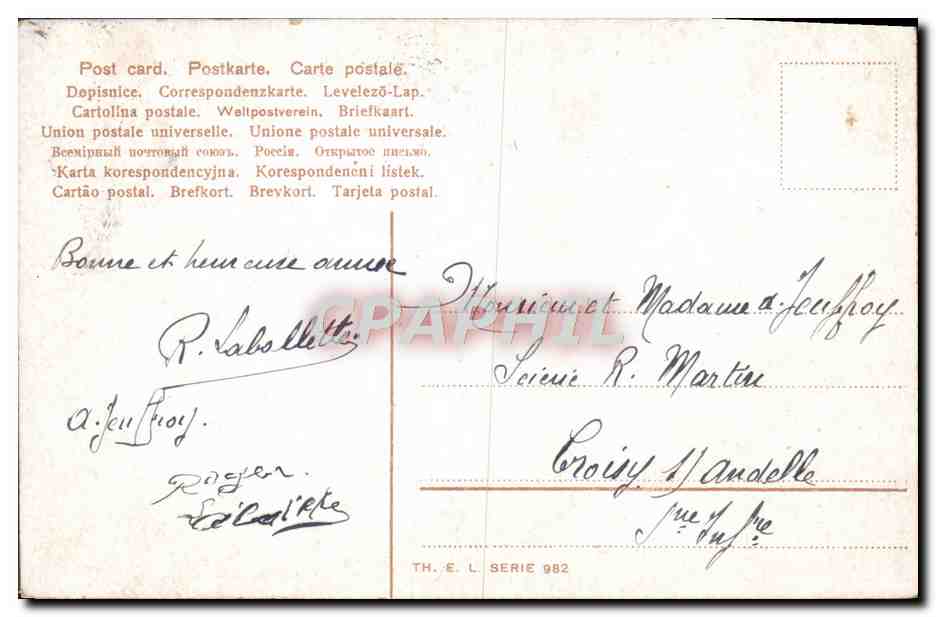 Post card. Postkarte. Carte postale.
Dopisnice. Correspondenzkarte. Levelező-Lap.
Cartolina postale. Weltpostverein. Briefkaart.
Union postale universelle. Unione postale universale.
Всемірный почтовый союзъ. Россія. Открытое письмо.
Karta korespondencyjna. Korespondenční lístek.
Cartão postal. Brefkort. Brevkort. Tarjeta postal.
Bonne et heureuse année
R. Labollette
A. Jeuffroy.
Roger
Monsieur et Madame A. Jeuffroy
Scierie R. Martin
Croisy s/ Andelle
Sne Infre
CPAPHIL
TH. E. L. SERIE 982